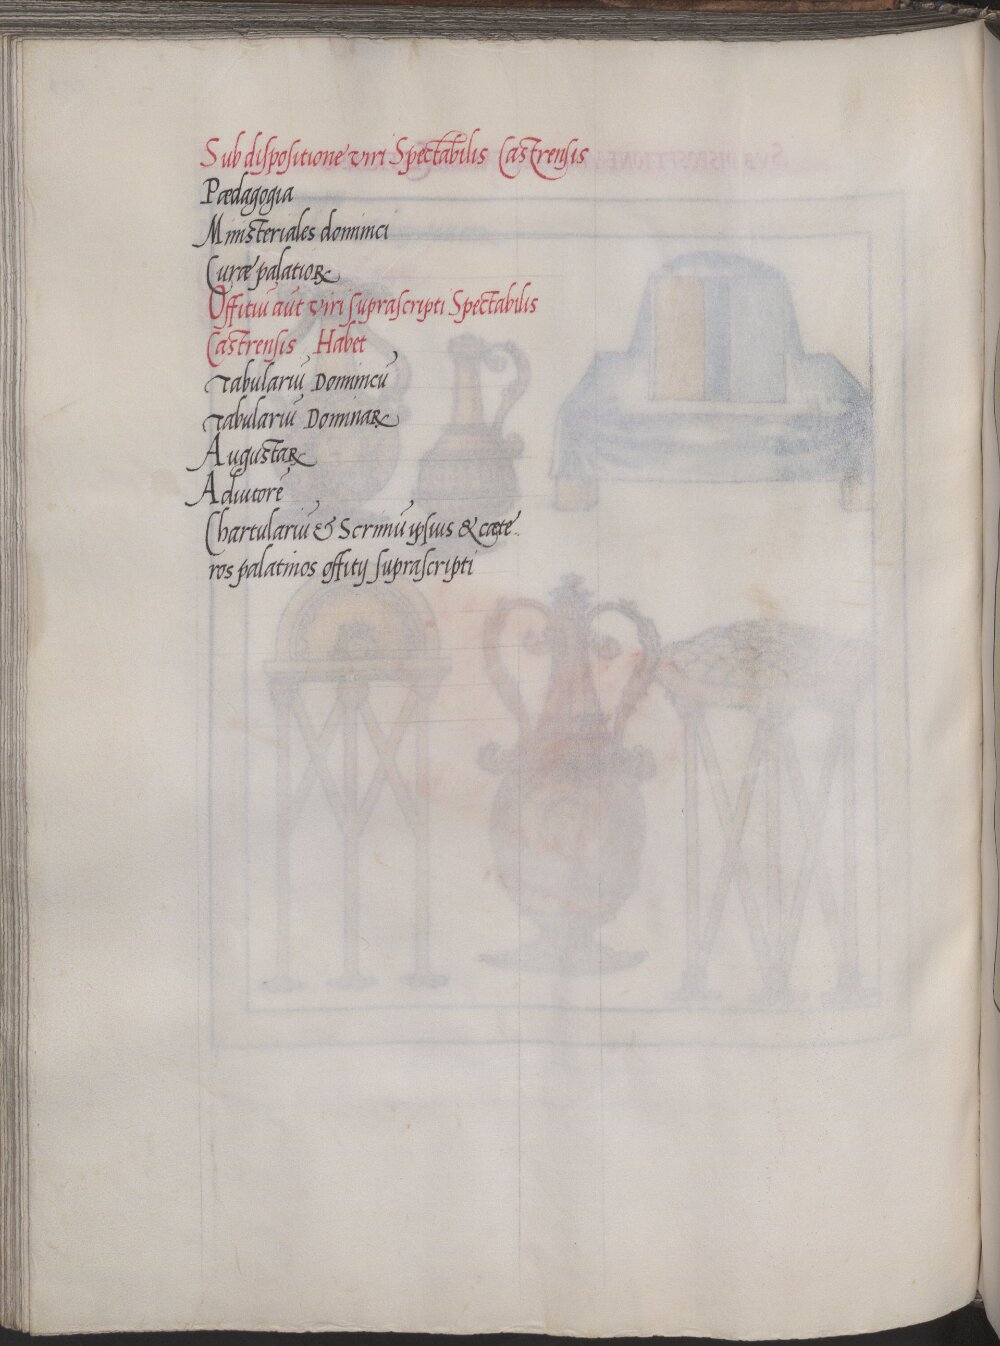 Sub dispositione viri Spectabilis Castrensis
Pædagogia
Ministeriales dominici
Curæ palatioꝝ
Offitiū aūt viri suprascripti Spectabilis
Castrensis Habet
Tabulariū Dominicū
Tabulariū Dominaꝝ
Augustaꝝ
Adiutorē
Chartulariū & Scriniū ipsius & cæte
ros palatinos offitij suprascripti